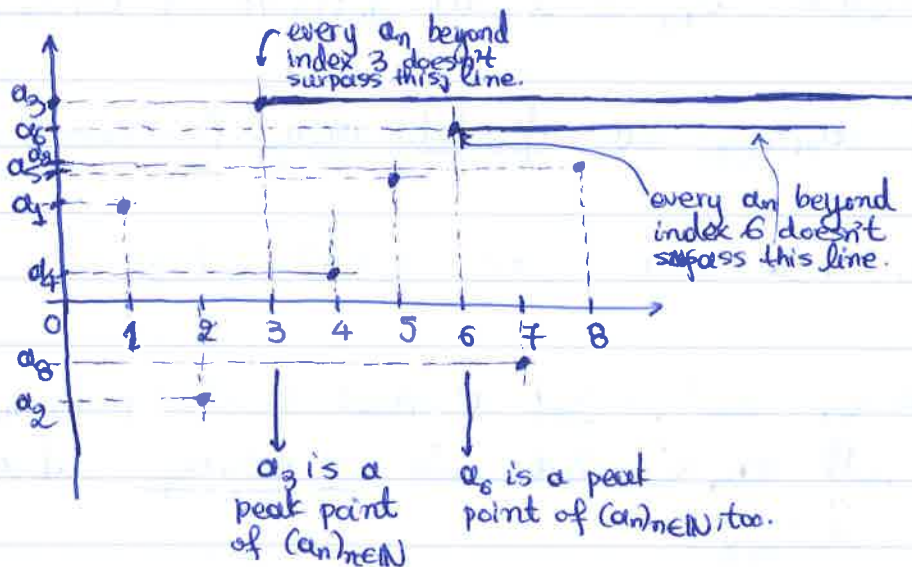 every an beyond
index 3 doesn't
surpass this, line.
a3
a6
a8
a5
a1
a4
every an beyond
index 6 doesn't
surpass this line.
0 1 2 3 4 5 6 7 8
a8
a2
a3 is a
peak point
of (an)n∈ℕ
a6 is a peak
point of (an)n∈ℕ, too.